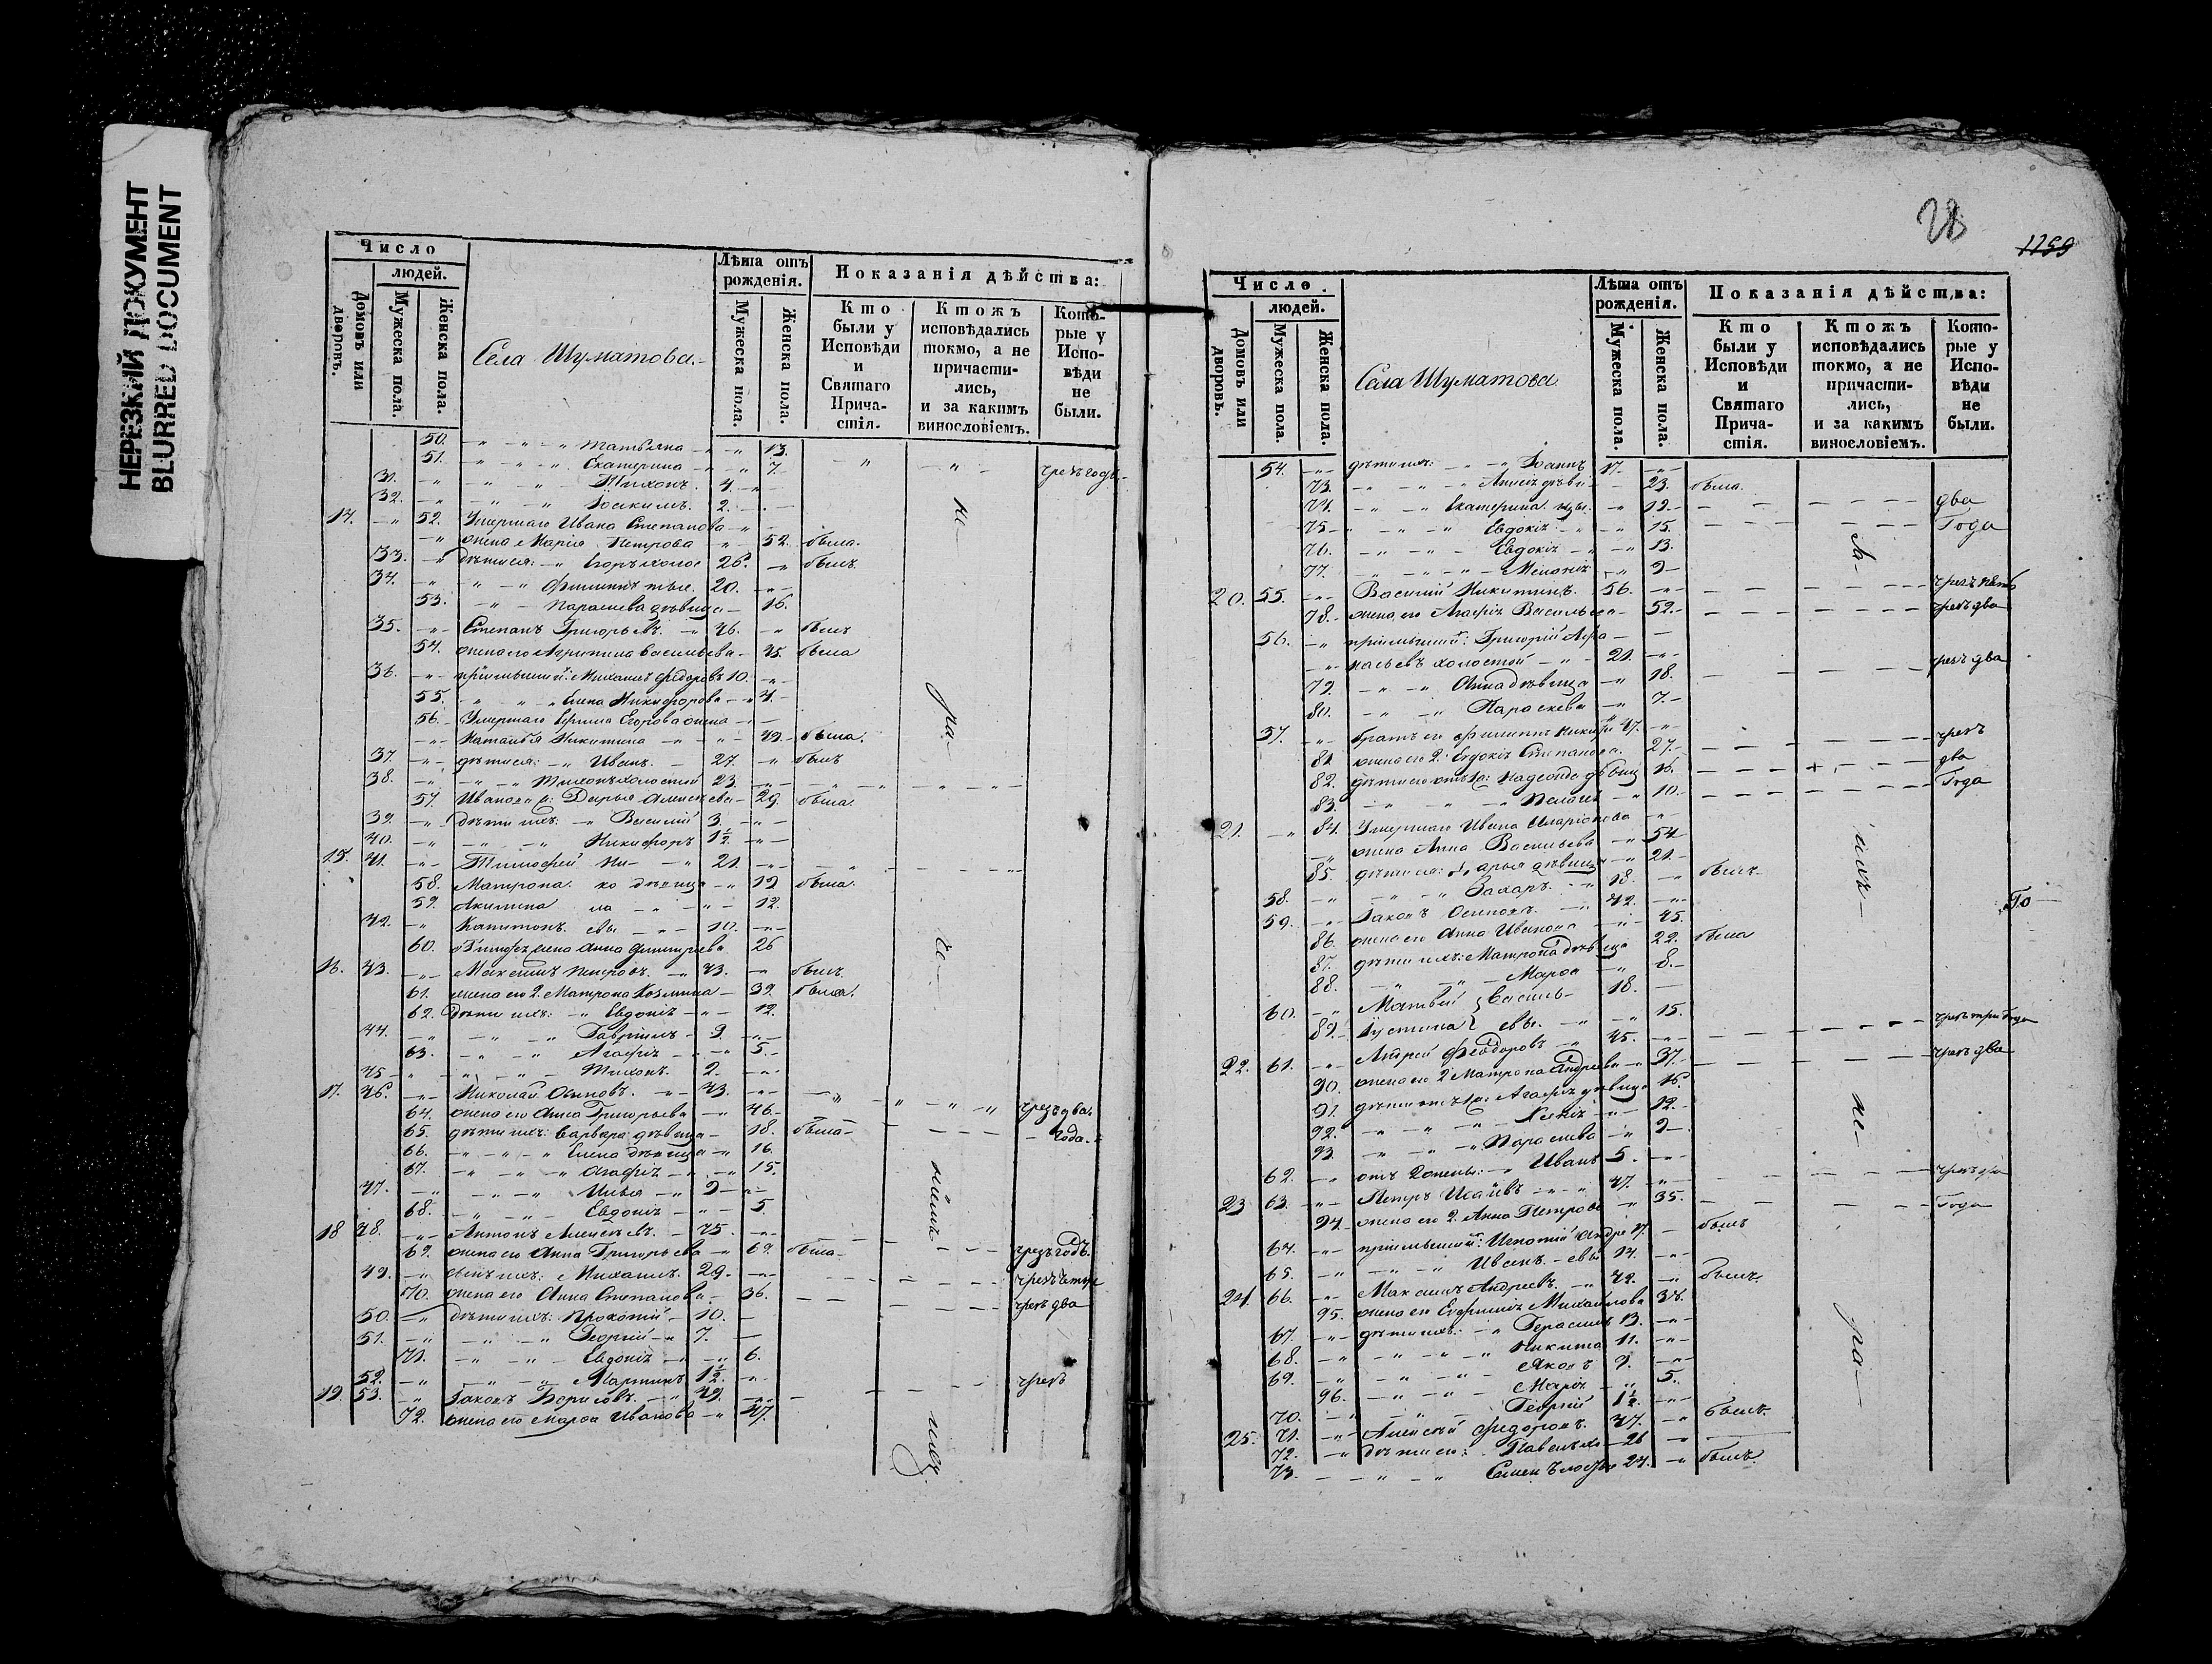 НЕРЕЗКИЙ ДОКУМЕНТ
BLURRED DOCUMENT
Число
людей.
Домовъ или дворовъ.
Мужеска пола.
Женска пола.
Села Шуматова.
Лѣта отъ рожденія.
Мужеска пола.
Женска пола.
Показанія дѣйства:
Кто были у Исповѣди и Святаго Прича-стія.
Ктожъ исповѣдались токмо, а не причасти-лись, и за какимъ винословіемъ.
Кото-рые у Испо-вѣди не были.
50. Татьяна 13.
51. Екатерина 7. чрезъ годъ
31. Тихонъ. 4.
32. Іоакимъ. 2.
14. 52. Умершаго Ивана Степанова
жена Марія Петрова 52. была.
33. дѣти ея: Егоръ холос 26. былъ
34. Филиппъ 20.
53. Параскева дѣвица 16.
35. Степанъ Григорьевъ. 46. былъ
54. жена его Агрипина Васильева 45. была
36. пріимышй: Михаилъ Федоровъ 10.
55. Елена Никифорова 4.
56. Умершаго Ефима Егорова жена
Наталья Никитина 49. была.
37. дѣти ея: Иванъ. 27. былъ
38. Тихонъ холостой 23.
57. Ивановa ж: Дарья Алексѣева 29. была.
39. дѣти ихъ: Василій 3.
40. Никифоръ 1½
15. 41. Тимофей Ни- 21.
58. Матрона ко дѣвица 19 была.
59. Акилина ла 12.
42. Капитонъ евы 10.
60. Тимоф жена Анна Димитріева 26
16. 43. Максимъ Петровъ. 43. былъ
61. жена его 2. Матрона Козмина 39. была.
62. дѣти ихъ: Евдокія 12.
44. Гавріилъ 9.
63. Агафія 5.
45 Тихонъ. 2.
17. 46. Николай Осиповъ. 43.
64. жена его Анна Григорьева 46. чрезъ два
65. дѣти ихъ: Варвара дѣвица 18. была года.
66. Елена дѣвица 16.
67. Агафія 15.
47. Илья 9
68. Евдокія 5
18 48. Антонъ Алексѣевъ. 75.
69. жена его Анна Григорьева 69. была чрезъ годъ.
49. сынъ ихъ: Михаилъ. 29. чрезъ четыре
70. жена его Анна Степанова 36. чрезъ два
50. дѣти ихъ: Прокопій 10.
51. Георгій 7.
71. Евдокія 6.
52. Мартинъ 1½
19. 53. Іаковъ Борисовъ. 49. чрезъ
72. жена его Марфа Иванова 47.
28
1259
Число.
людей.
Домовъ или дворовъ.
Мужеска пола.
Женска пола.
Села Шуматова.
Лѣта отъ рожденія.
Мужеска пола.
Женска пола.
Показанія дѣйства:
Кто были у Исповѣди и Святаго Прича-стія.
Ктожъ исповѣдались токмо, а не причасти-лись, и за какимъ винословіемъ.
Кото-рые у Испо-вѣди не были.
54. дѣти ихъ: Іоаннъ 17.
73. Анисія дѣви 23. была.
74. Екатерина цы. 19. два
75 Евдокія 15. Года
76. Евдокія 13.
77. Меланія 9
20. 55. Василій Никитинъ. 56. чрезъ пять
78. жена его Агафія Васильева 52. чрезъ два
56. пріимышй: Григорій Афа
насьевъ холостой 21.
79. Анна дѣвица 18. чрезъ два
80. Параскева 7.
57. братъ его Филиппъ Никит 47. чрезъ
81 жена его 2. Евдокія Степанова. 27. два
82. дѣти его отъ 1й: Надежда дѣвиц 16. Года
83. Пелагея 10.
21. 84. Умершаго Ивана Иларіонова
жена Анна Васильева 54
85. дѣти ея: Дарья дѣвица 21.
58. Захаръ 18. былъ
59. Іаковъ Осиповъ. 42.
86. жена его Анна Иванова 45.
87. дѣти ихъ: Матрона дѣвица 22. была
88. Марфа 8.
60. Матвѣй Василь- 18.
89. Іустина евы. 15.
22. 61. Андрей Феодоровъ 45. чрезъ три Года
90. жена его 2 Матрона Андреева 37. чрезъ два
91. дѣти отъ 1й: Агафія дѣвица 16.
92. Ксенія 12.
93. Параскева 9
62. отъ 2 жены: Иванъ 5.
23 63. Петръ Исаевъ 47. чрезъ два
94. жена его 2. Анна Петрова 35. Года
64. пріимышй: Игнатій Андре 17. былъ
65. Иванъ евы 14.
24. 66. Максимъ Андреевъ. 42. былъ
95. жена его Евфимія Михайлова 38.
67. дѣти ихъ: Герасимъ 13.
68. Никита 11.
69. Яковъ 9.
96. Марія 5.
70. Георгій 1½
25. 71. Алексѣй Федоровъ. 47. былъ
72. дѣти его: Павелъ хо 26
73. Семенъ лостые 24. былъ